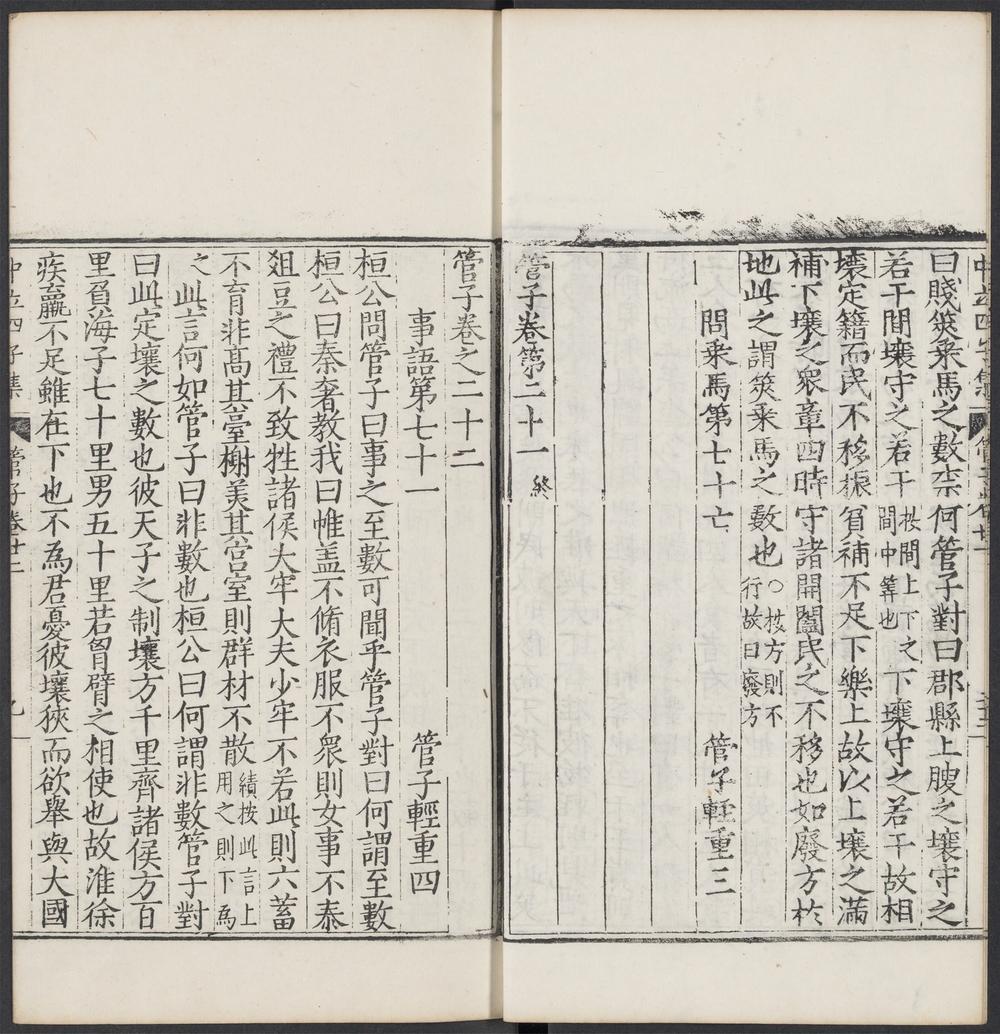 曰賤筴乘馬之數柰何管子對曰郡縣上臾之壤守之
若干間壤守之若干按間上下之間中筭也下壤守之若干故相
壤定籍而民不移振貧補不足下樂上故以上壤之滿
補下壤之衆章四時守諸開闔民之不移也如廢方於
地此之謂筴乘馬之數也○按方則不行故曰廢方
問乘馬第七十亡　管子輕重三
管子卷第二十一終
管子卷之二十二
事語第七十一　管子輕重四
桓公問管子曰事之至數可聞乎管子對曰何謂至數
桓公曰秦奢教我曰帷盖不脩衣服不衆則女事不泰
俎豆之禮不致牲諸侯大牢大夫少牢不若此則六畜
不育非髙其臺榭美其宮室則群材不散績按此言上用之則下為
之此言何如管子曰非數也桓公曰何謂非數管子對
曰此定壤之數也彼天子之制壤方千里齊諸侯方百
里負海子七十里男五十里若胷臂之相使也故淮徐
疾羸不足雖在下也不為君憂彼壤狹而欲舉與大國
管子卷廿二